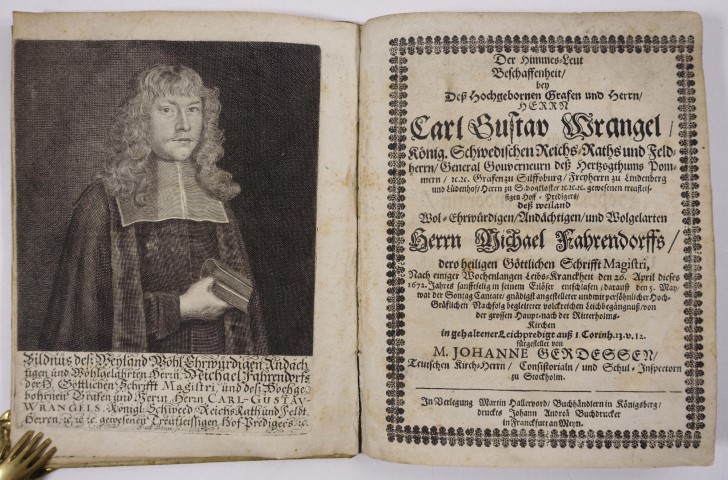 Bildnus deß Weyland Wohl Ehrwürdigen Andäch
tigen und Wohlgelahrten Herrn, Michael Fahrendorfs
der H. Göttlichen Schrifft Magistri, und deß Hochge
bohrnen Grafen und Herrn, Herrn CARL-GUSTAV
WRANGELS, Königl. Schwed. Reichs Rath und Feldt
Herren, ꝛc. ꝛc. ꝛc. gewesenen Treufleissigen Hof-Predigers ꝛc.
Der Himmels-Leut
Beschaffenheit/
bey
Deß Hochgebornen Grafen und Herrn/
HERRN
Carl Gustav Wrangel/
König. Schwedischen Reichs/Raths und Feld-
herrn/General Gouverneurn deß Hertzogthums Pom-
mern/ ꝛc.ꝛc. Grafen zu Silffoburg/ Freyherrn zu Lindenberg
und Lüdenhof/Herrn zu Schogkloster ꝛc.ꝛc.ꝛc. gewesenen treufleis-
sigen Hof-Predigers/
deß weiland
Wol-Ehrwürdigen/Andächtigen/und Wolgelarten
Herrn Michael Fahrendorffs/
dero heiligen Göttlichen Schrifft Magistri,
Nach einiger Wochenlangen Leibs-Kranckheit den 26. April dieses
1672. Jahres sanfftselig in seinem Erlöser entschlafen/ darauff den 5. May/
war der Sontag Cantate/ gnädigst angestellter und mit persöhnlicher Hoch-
Gräflichen Nachfolg begleiteter volckreichen Leichbegängnuß/ von
der grossen Haupt-nach der Ritterholms-
Kirchen
in gehaltener Leichpredigt auß 1. Corinth. 13. v. 12.
fürgestellet von
M. JOHANNE GERDESSEN/
Teutschen Kirch-Herrn/ Consistorialn/ und Schul-Inspectorn
zu Stockholm.
In Verlegung Martin Hallervord/ Buchhändlern in Königsberg/
druckts Johann Andreä Buchdrucker
in Franckfurt am Mäyn.